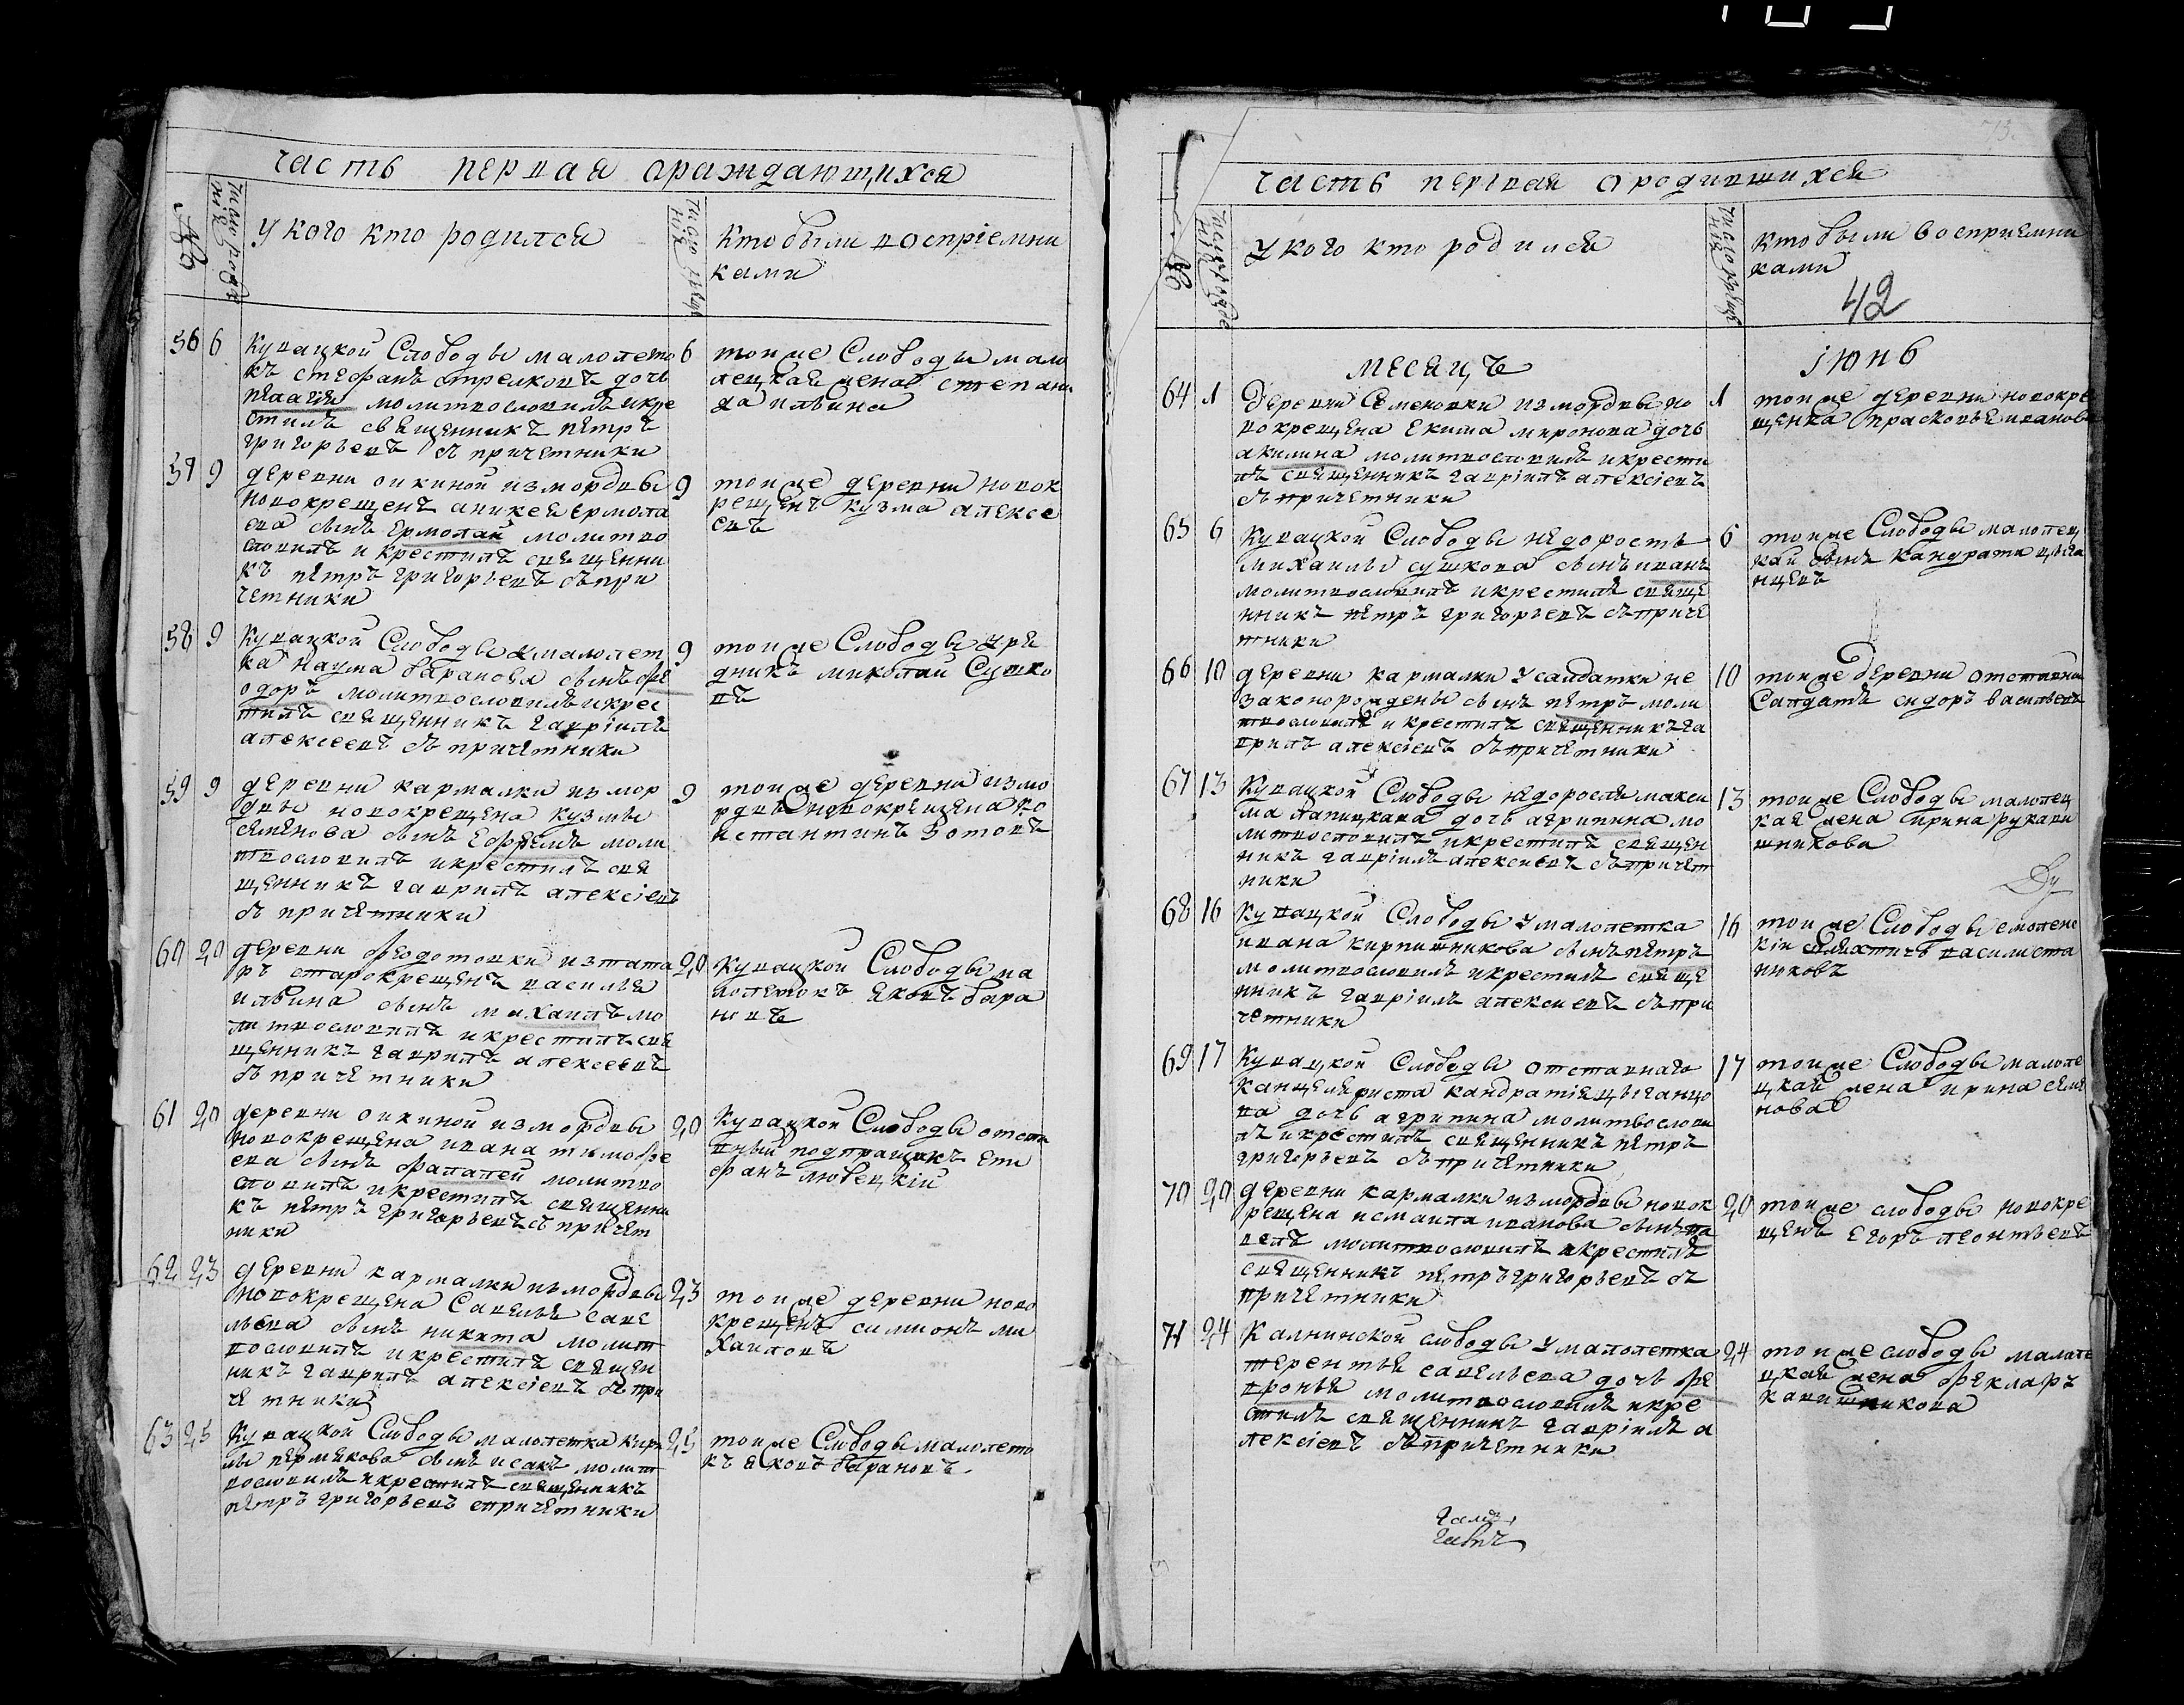 часть первая ораждающихся
№
число рожде
нія
у кого кто родился
число креще
нія
кто были восприемни
ками
56 6 Кувацкой Слободы малолето
къ стефанъ стрелковъ дочь
пелагия молитвословилъ икре
стилъ священникъ петръ
григорьевъ съ причетники
6 тои же Слободы мало
лецкая жена степани
да ильина
57 9 деревни оикиной из мордвы
новокрещенъ аникея ермола
ева сынъ Ермолаи молитво
словилъ и крестилъ священни
къ петръ григорьевъ съ при
четники
9 тои же деревни новок
рещенъ кузма алексе
евъ
58 9 Кувацкой Слободы малолет
ка наума баранова сынъ фе
одоръ молитвословилъ икрес
тилъ священникъ гавріилъ
алексеевъ съ причетники
9 тои же Слободы
дникъ миколаи Сушко
въ
59 9 деревни кармалки из мор
двы новокрещена кузмы
семенова сынъ Ефремъ моли
твословилъ икрестилъ свя
щенникъ гаврилъ алексіевъ
съ причетники
9 тои же деревни из мо
рдвы новокрещена ко
нстантинъ зотовъ
60 20 деревни федотовки из тата
ръ старокрещенъ василья
ильина сынъ михаилъ мо
литвословилъ икрестилъ свя
щенникъ гаврилъ алексеевъ
съ причетники
20 Кувацкой Слободы ма
лолетокъ яковъ бара
новъ
61 20 деревни оикиной из мордвы
новокрещена ивана тимофе
ева сынъ фалалеи молитво
словилъ икрестилъ священни
къ петръ григорьевъ съ причет
ники
20 Кувацкой Слободы отста
вный подпращикъ епи
фанъ любецкій
62 23 деревни кармалки из мордвы
новокрещена Савелья саве
льева сынъ никита молит
вословилъ икрестилъ священ
никъ гаврилъ алексіевъ съ при
четники
23 тои же деревни ново
крещенъ симионъ ми
хаиловъ
63 25 Кувацкой Слободы малолетка кири
лы пермякова сынъ исакъ молит
вословилъ икрестилъ священникъ
петръ григорьевъ спричетники
25 тои же Слободы малолето
къ яковъ барановъ
часть первая ородившихся
№
число рожде
нія
у кого кто родился
число креще
нія
кто были восприемни
ками
42
месяцъ іюнь
64 1 Деревни Семеновки из мордвы но
вокрещена Екима миронова дочь
акилина молитвословилъ икрести
лъ священникъ гавріилъ алексіевъ
съ причетники
1 тои же деревни новокре
щенка прасковье иванова
65 6 Кувацкой Слободы недорость
михаилы сушкова сынъ иванъ
молитвословилъ икрестилъ свяще
нникъ петръ григорьевъ съ приче
тники
6 тои же Слободы малолец
каи сынъ кандрати цыга
нцевъ
66 10 деревни кармалки у салдатки не
законорождены сынъ петръ моли
твословилъ и крестилъ священникъ га
врилъ алексіевъ съ причетники
10 тои же деревни отставнои
Салдатъ сидоръ васильевъ
67 13 Кувацкой Слободы недоросля макси
ма лапицкава дочь агрипина мо
литвословилъ икрестилъ священ
никъ гавріилъ алексиевъ съ причет
ники
13 тои же Слободы малолец
кая жена ирина рукави
шникова
Ду
68 16 Кувацкой Слободы у малолетка
ивана кирпишникова сынъ петръ
молитвословилъ икрестилъ свяще
нникъ гавріилъ алексиевъ съ при
четники
16 тои же Слободы смоленс
кіи шляхтичъ василиста
никовъ
69 17 Кувацкой Слободы отставнаго
канцеляриста кандратія цыганцо
ва дочь агрипина молитвослови
лъ икрестилъ священникъ петръ
григорьевъ съ причетники
17 тои же Слободы малоле
цкая жена ирина семе
нова
70 20 деревни кармалки из мордвы новок
рещена исмаила иванова сынъ па
велъ молитвословилъ икрестилъ
священникъ петръ григорьевъ съ
причетники
20 тои же слободы новокре
щенъ Егоръ леонтьевъ
71 24 Калнинской слободы у малолетка
терентья савельева дочь фе
вронья молитвословилъ икре
стилъ священникъ гавріилъ а
лексіевъ съ причетники
24 тои же слободы малоле
цкая жена фекла ру
кавишникова